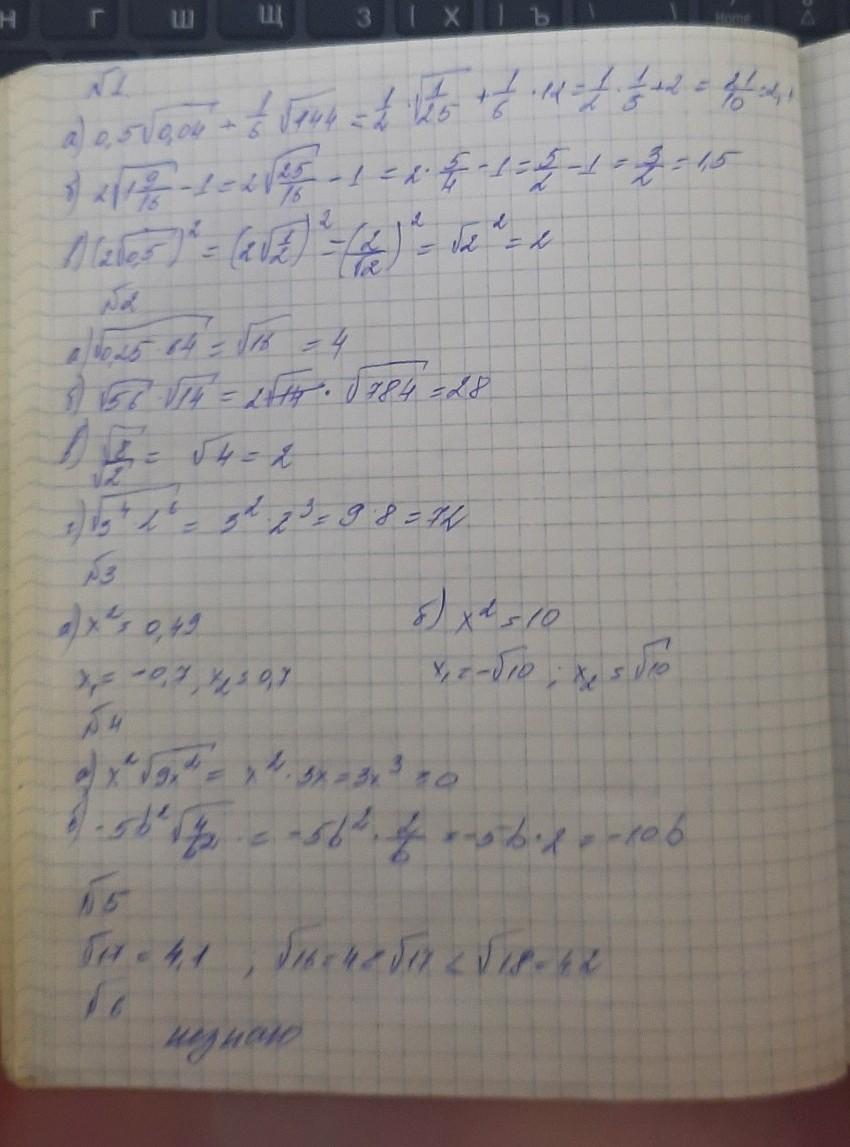 Н Г Ш Щ З Х Ъ \
Home
№1
а) 0,5√0,04 + 1/6 √144 = 1/2 · √1/25 + 1/6 · 12 = 1/2 · 1/5 + 2 = 21/10 = 2,1
б) 2√1 9/16 - 1 = 2√25/16 - 1 = 2 · 5/4 - 1 = 5/2 - 1 = 3/2 = 1,5
в) (2√0,5)² = (2√1/2)² = (2/√2)² = √2² = 2
№2
а) √0,25 · 64 = √16 = 4
б) √56 · √14 = 2√14 · √784 = 28
в) √8/√2 = √4 = 2
г) √3⁴ · 2⁶ = 3² · 2³ = 9 · 8 = 72
№3
а) x² = 0,49 б) x² = 10
x₁ = -0,7, x₂ = 0,7 x₁ = -√10 ; x₂ = √10
№4
а) x² √9x² = x² · 3x = 3x³ = 0
б) -5b² √4/b² = -5b² · 2/b = -5b · 2 = -10b
№5
√17 = 4,1 , √16 = 4 < √17 < √18 = 4,2
№6
незнаю